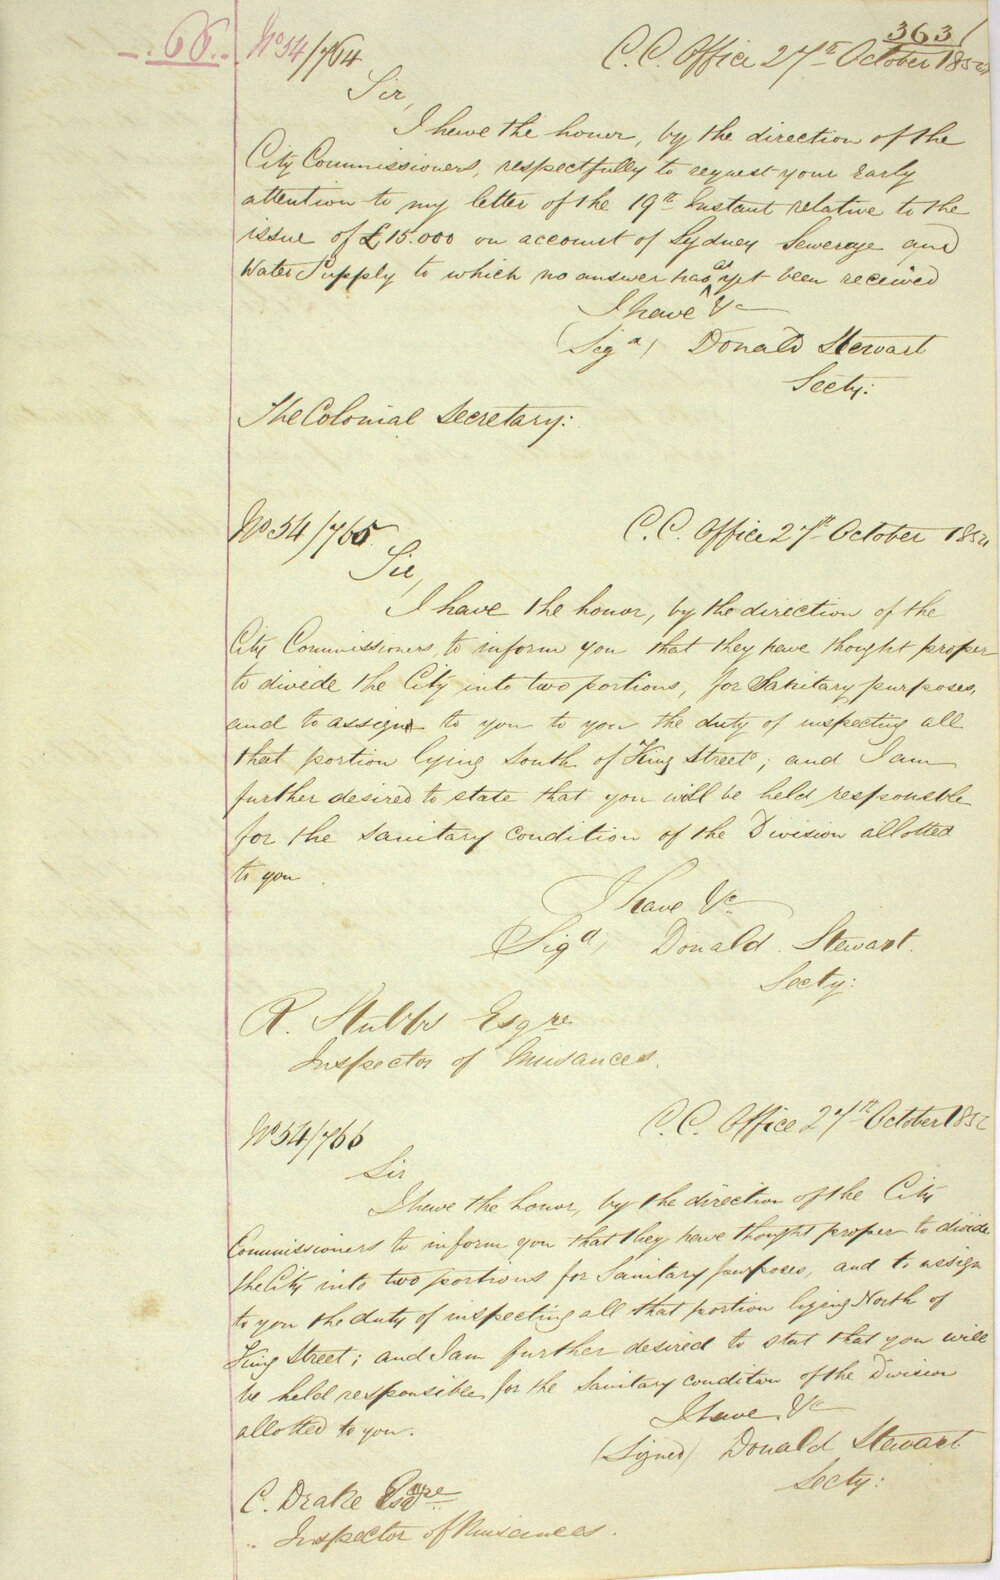 363
66. No 54/764 C. C. Office 27th October 1854
Sir,
I have the honor, by the direction of the
City Commissioners, respectfully to request your Early
attention to my letter of the 19th Instant relative to the
issue of £15.000 on account of Sydney Sewerage and
Water Supply to which no answer has as yet been received
I have &c
(Sigd) Donald Stewart
Secty:
The Colonial Secretary:
No 54/765 C. C. Office 27th October 1854
Sir,
I have the honor, by the direction of the
City Commissioners, to inform you that they have thought proper
to divide the City into two portions, for Sanitary purposes,
and to assign to you to you the duty of inspecting all
that portion lying South of King Street; and I am
further desired to state that you will be held responsible
for the sanitary condition of the Division allotted
to you.
I have &c
(Sigd) Donald Stewart.
Secty:
R. Stubbs Esqre
Inspector of Nuisances.
No 54/766 C. C. Office 27th October 185
Sir
I have the honor, by the direction of the City
Commissioners to inform you that they have thought proper to divide
the City into two portions for Sanitary purposes, and to assign
to you the duty of inspecting all that portion lying North of
King Street; and I am further desired to stat that you will
be held responsible for the Sanitary condition of the Division
allotted to you.
I have &c
(Signed) Donald Stewart
Secty:
C. Drake Esqre
" Inspector of Nuisances.